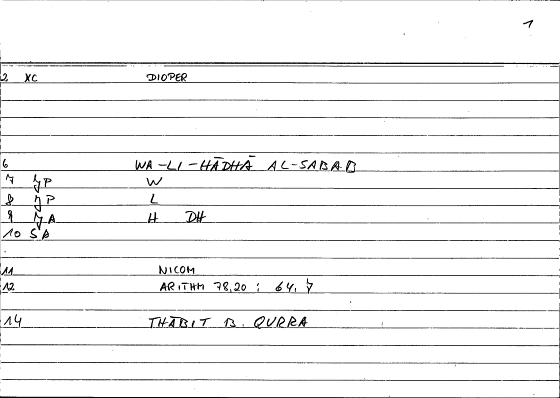 1
2 XC DIOPER
6 WA-LI-HĀDHĀ AL-SABAB
7 JP W
8 JP L
9 JA H DH
10 SA
11 NICOM
12 ARITHM 78,20 : 64, 7
14 THĀBIT B. QURRA